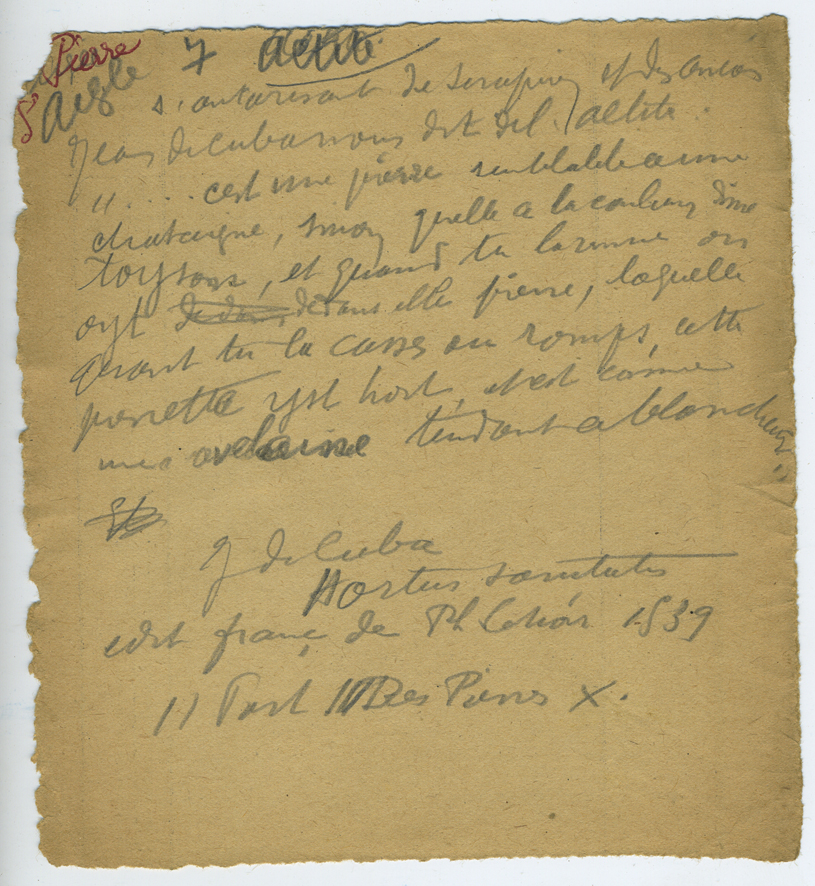 Pierre
d'Aigle 7 aetite
s'autorisant de Serapion et des anciens
Jean de Cuba nous dit de l'aetite.
" .... cest une pierre semblable a une
chastaigne, sinon quelle a la couleur dune
toyson, et quand tu la remue on
oyt dedans elle pierre, laquelle
quant tu la casses ou romps, cette
pierrette yst hors, et est comme
une avelaine tendant a blancheur "
J de Cuba
Hortus sanitatis
edit franç de Ph 1539
II Part Des Pierres X.